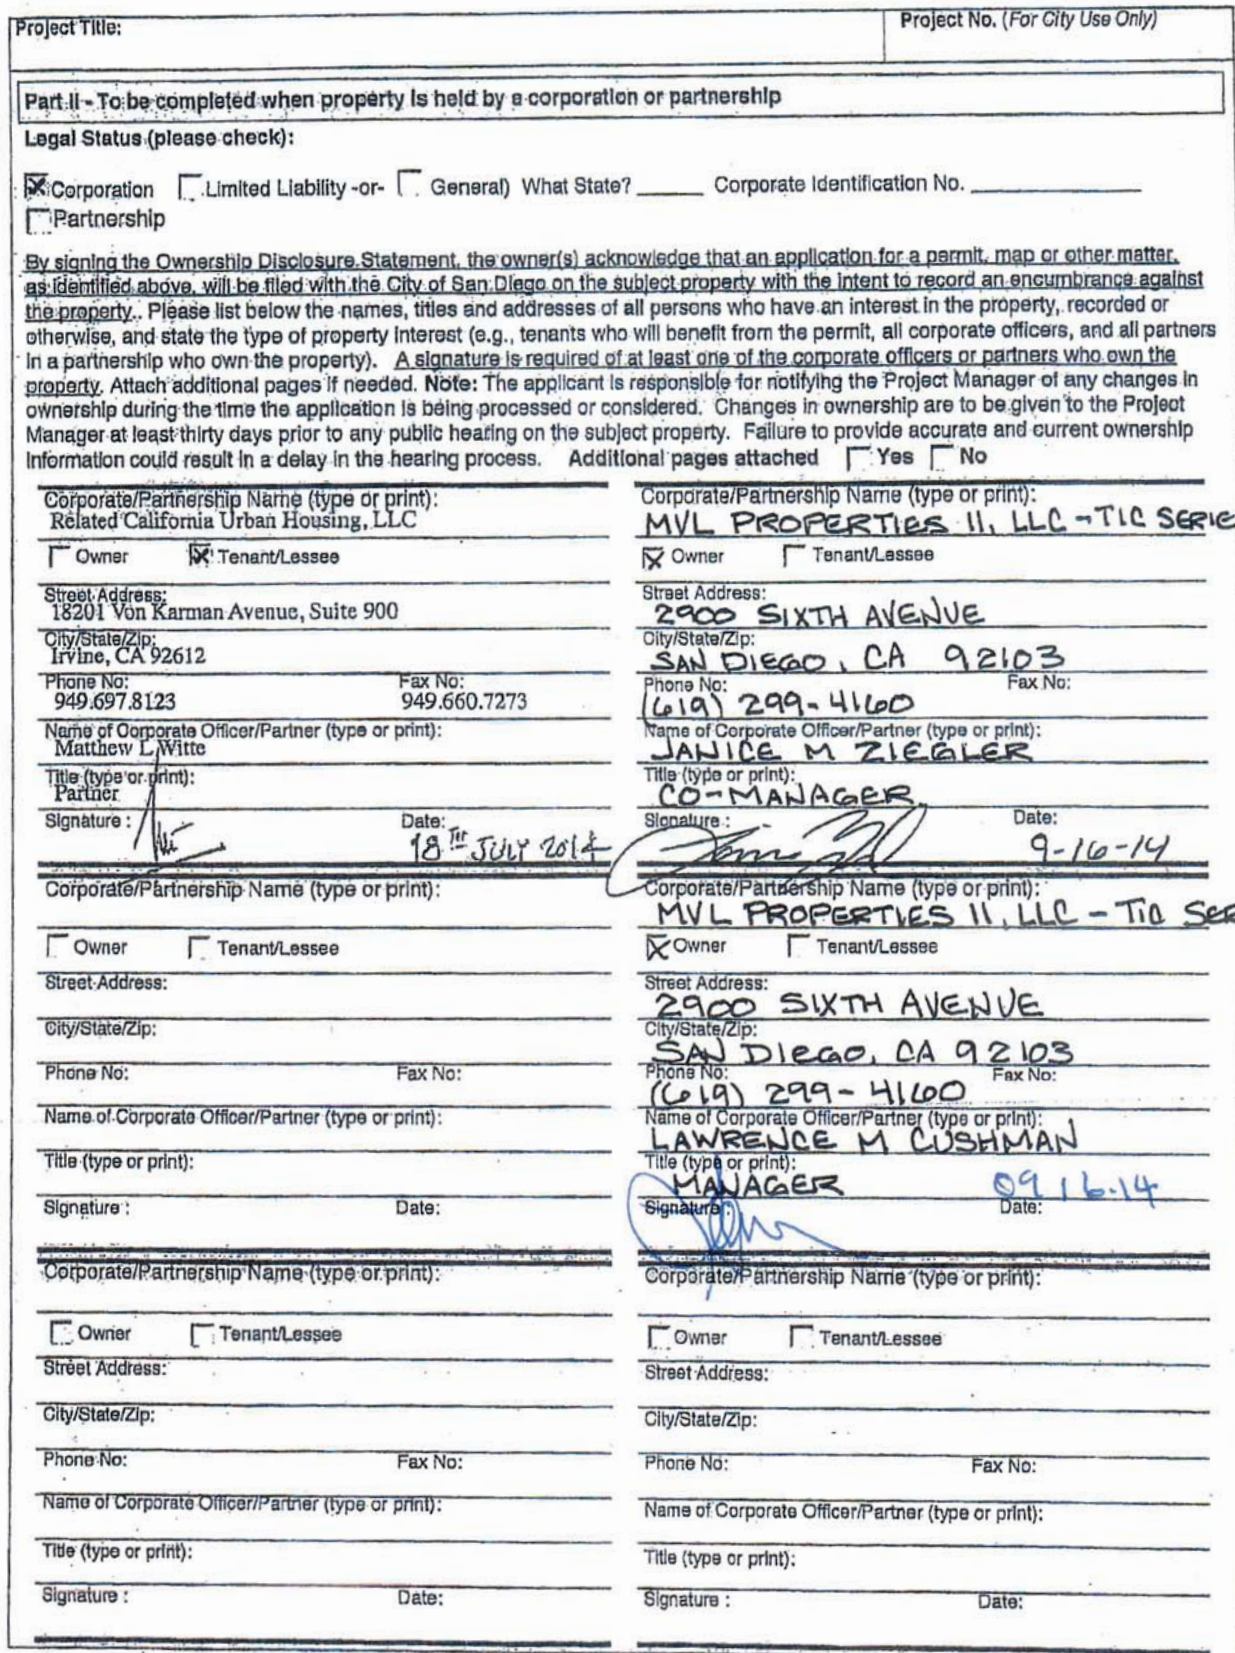 Project Title:
Project No. (For City Use Only)
Part II - To be completed when property is held by a corporation or partnership
Legal Status (please check):
Corporation Limited Liability -or- General) What State? ______ Corporate Identification No. ______
Partnership
By signing the Ownership Disclosure Statement, the owner(s) acknowledge that an application for a permit, map or other matter,
as identified above, will be filed with the City of San Diego on the subject property with the intent to record an encumbrance against
the property.. Please list below the names, titles and addresses of all persons who have an interest in the property, recorded or
otherwise, and state the type of property interest (e.g., tenants who will benefit from the permit, all corporate officers, and all partners
in a partnership who own the property). A signature is required of at least one of the corporate officers or partners who own the
property. Attach additional pages if needed. Note: The applicant is responsible for notifying the Project Manager of any changes in
ownership during the time the application is being processed or considered. Changes in ownership are to be given to the Project
Manager at least thirty days prior to any public hearing on the subject property. Failure to provide accurate and current ownership
information could result in a delay in the hearing process. Additional pages attached Yes No
Corporate/Partnership Name (type or print):
Related California Urban Housing, LLC
Owner Tenant/Lessee
Street Address:
18201 Von Karman Avenue, Suite 900
City/State/Zip:
Irvine, CA 92612
Phone No: Fax No:
949.697.8123 949.660.7273
Name of Corporate Officer/Partner (type or print):
Matthew L Witte
Title (type or print):
Partner
Signature : Date:
18TH JULY 2014
Corporate/Partnership Name (type or print):
MVL PROPERTIES II, LLC - TIC SERIE
Owner Tenant/Lessee
Street Address:
2900 SIXTH AVENUE
City/State/Zip:
SAN DIEGO, CA 92103
Phone No: Fax No:
(619) 299-4160
Name of Corporate Officer/Partner (type or print):
JANICE M ZIEGLER
Title (type or print):
CO-MANAGER
Signature : Date:
9-16-14
Corporate/Partnership Name (type or print):
Owner Tenant/Lessee
Street Address:
City/State/Zip:
Phone No: Fax No:
Name of Corporate Officer/Partner (type or print):
Title (type or print):
Signature : Date:
Corporate/Partnership Name (type or print):
MVL PROPERTIES II, LLC - TIC SER
Owner Tenant/Lessee
Street Address:
2900 SIXTH AVENUE
City/State/Zip:
SAN DIEGO, CA 92103
Phone No: Fax No:
(619) 299-4160
Name of Corporate Officer/Partner (type or print):
LAWRENCE M CUSHMAN
Title (type or print):
MANAGER 09 16.14
Signature : Date:
Corporate/Partnership Name (type or print):
Owner Tenant/Lessee
Street Address:
City/State/Zip:
Phone No: Fax No:
Name of Corporate Officer/Partner (type or print):
Title (type or print):
Signature : Date:
Corporate/Partnership Name (type or print):
Owner Tenant/Lessee
Street Address:
City/State/Zip:
Phone No: Fax No:
Name of Corporate Officer/Partner (type or print):
Title (type or print):
Signature : Date: